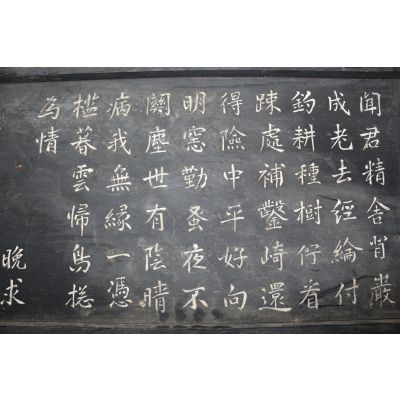 聞君精舍背巖
成老去經綸付
釣耕種樹仔看
踈處補鑿崎還
得險中平好向
明窓勤蚤夜不
関塵世有陰晴
病我無緣一憑
檻暮雲帰鳥捴
為情
晩求